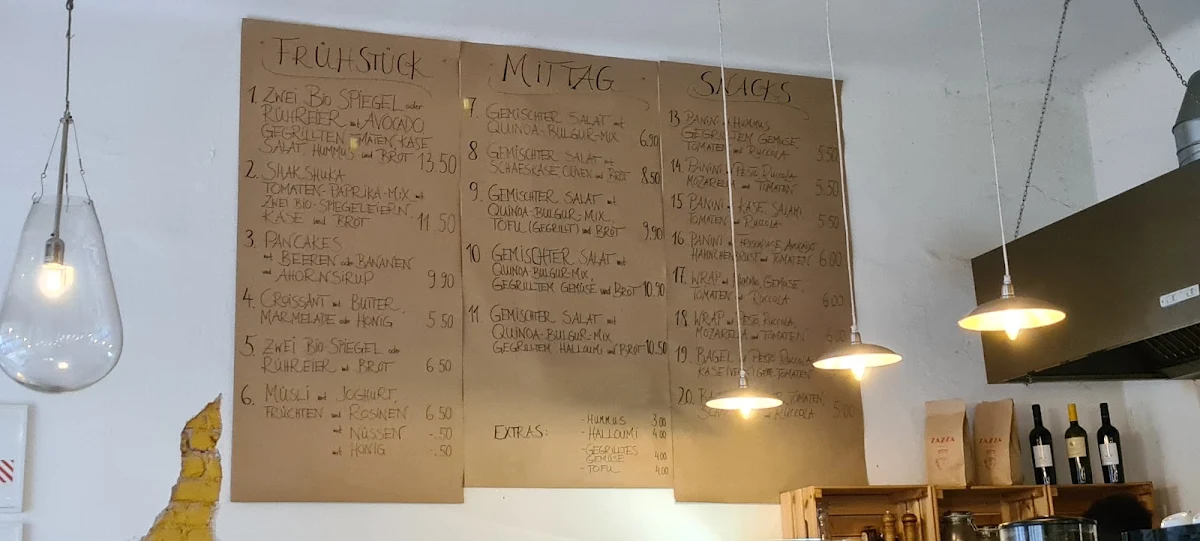 FRÜHSTÜCK
1. ZWEI BIO SPIEGEL oder
RÜHREIER mit AVOCADO,
GEGRILLTEN TOMATEN, KÄSE
SALAT, HUMMUS und BROT 13.50
2. SHAKSHUKA
TOMATEN-PAPRIKA-MIX mit
ZWEI BIO-SPIEGELEIERN,
KÄSE und BROT 11.50
3. PANCAKES
mit BEEREN oder BANANEN
und AHORNSIRUP 9.90
4. CROISSANT mit BUTTER,
MARMELADE oder HONIG 5.50
5. ZWEI BIO-SPIEGEL oder
RÜHREIER mit BROT 6.50
6. MÜSLI mit JOGHURT,
FRÜCHTEN und ROSINEN 6.50
mit NÜSSEN -.50
mit HONIG -.50
MITTAG
7. GEMISCHTER SALAT mit
QUINOA-BULGUR-MIX 6.90
8 GEMISCHTER SALAT mit
SCHAFSKÄSE OLIVEN und BROT 8.50
9. GEMISCHTER SALAT mit
QUINOA-BULGUR-MIX,
TOFU (GEGRILLT) und BROT 9.90
10. GEMISCHTER SALAT mit
QUINOA-BULGUR-MIX,
GEGRILLTEM GEMÜSE und BROT 10.90
11. GEMISCHTER SALAT mit
QUINOA-BULGUR-MIX
GEGRILLTEM HALLOUMI und BROT 10.50
EXTRAS:
- HUMMUS 3.00
- HALLOUMI 4.00
- GEGRILLTES
GEMÜSE 4.00
- TOFU 4.00
SNACKS
13. PANINI HUMMUS
GEGRILLTEM GEMÜSE,
TOMATEN und RUCCOLA 5.50
14. PANINI PESTO RUCCOLA,
MOZARELLA und TOMATEN 5.50
15 PANINI KÄSE, SALAMI
TOMATEN und RUCCOLA 5.50
16. PANINI FRISCHKÄSE, AVOKADO
HÄHNCHENBRUST und TOMATEN 6.00
17. WRAP GEMÜSE,
TOMATEN RUCCOLA 6.00
18 WRAP PESTO RUCCOLA,
MOZARELLA und TOMATEN 6.00
19. BAGEL PESTO RUCCOLA
KÄSE TOMATEN
20. TOMATEN,
und RUCCOLA 5.00
ZAZZA
ZAZZA